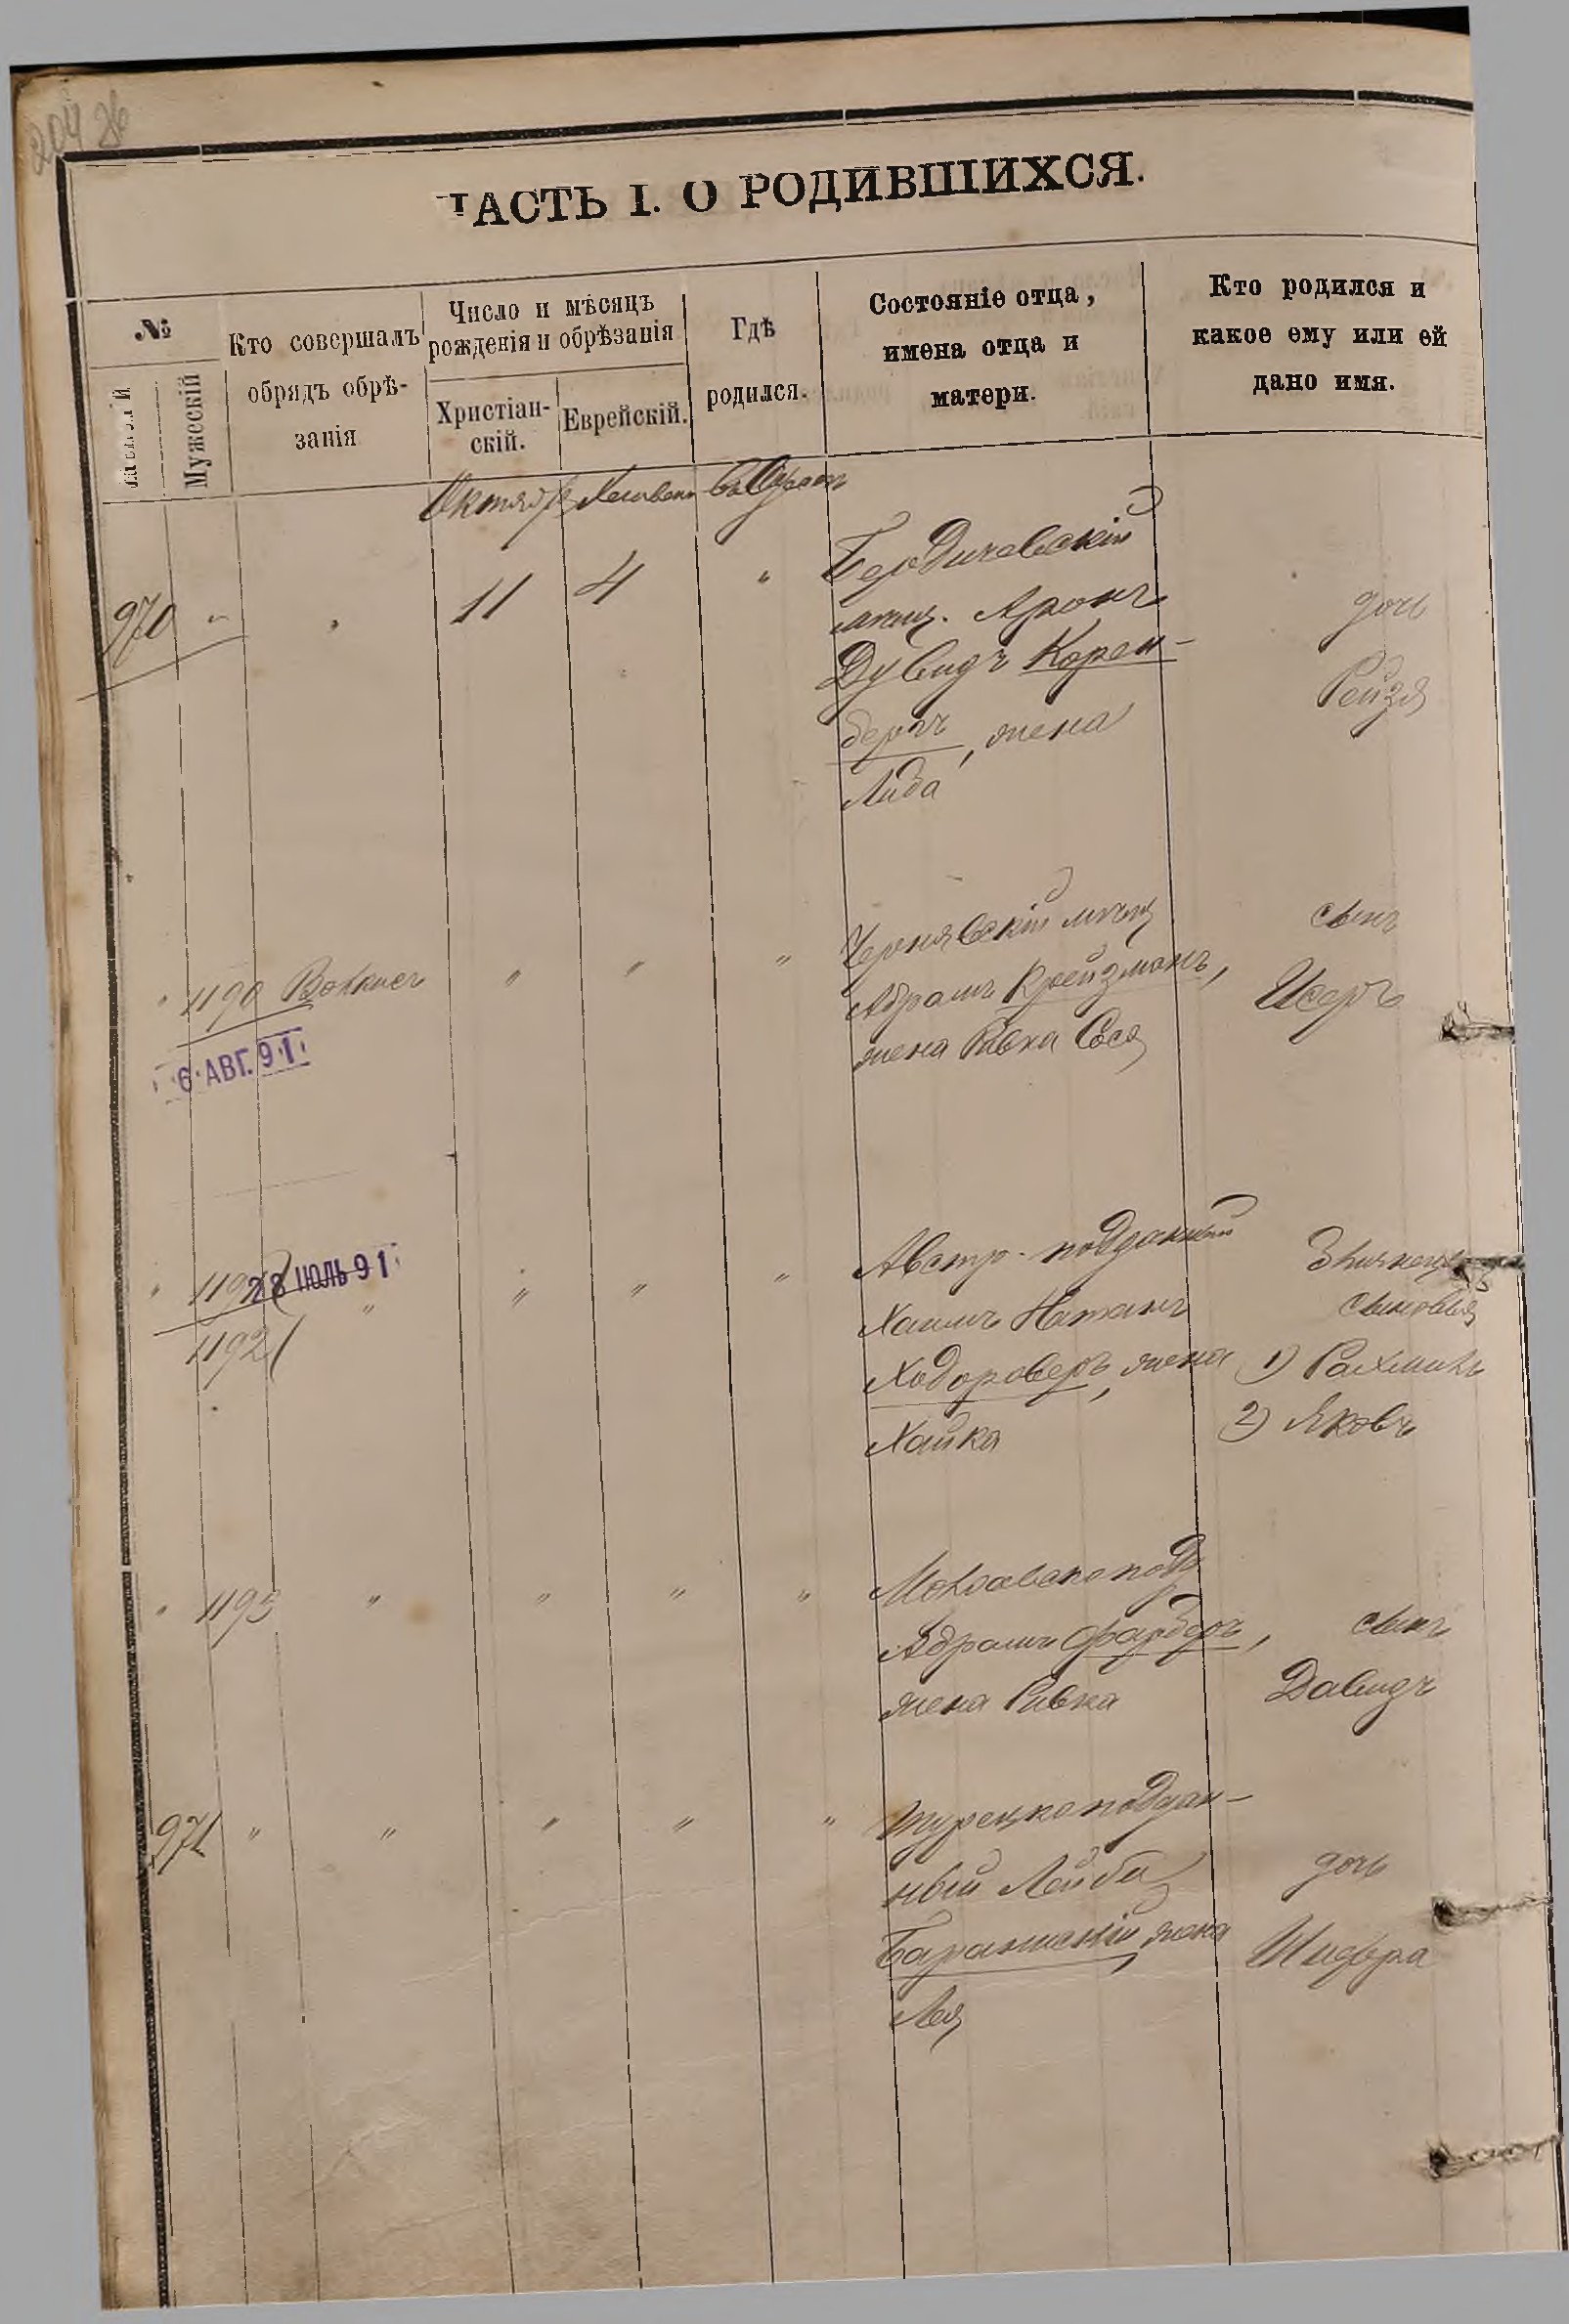 204 об
ЧАСТЬ I. О РОДИВШИХСЯ.
№
Женскій
Мужескій
Кто совершалъ
обрядъ обрѣ-
занія
Число и мѣсяцъ
рожденія и обрѣзанія
Христіан-
скій.
Еврейскій.
Гдѣ
родился.
Состояніе отца,
имена отца и
матери.
Кто родился и
какое ему или ей
дано имя.
Октябр Хешвенъ въ Одессѣ
970 " " 11 4 "
Бердичевскій
мѣщ. Аронъ
Дувидъ Корен-
бергъ, жена
Либа
дочь
Рейзя
" 1190 Волкисъ " " "
6 АВГ. 91
Чернявскій мѣщ
Абрамъ Крейзманъ,
жена Ривка Сося
сынъ
Исеръ
" 1191 " " " "
28 ІЮЛЬ 91
1192
Австр. подданный
Хаимъ Натанъ
Ходороверъ, жена
Хайка
Близнецы
сыновья
1) Рахмиль
2) Яковъ
" 1193 " " " "
Молдавскоподд
Абрамъ Фарберъ,
жена Ривка
сынъ
Давидъ
971 " " " " "
Турецкоподдан-
ный Лейба
жена
Лея
дочь
Шифра